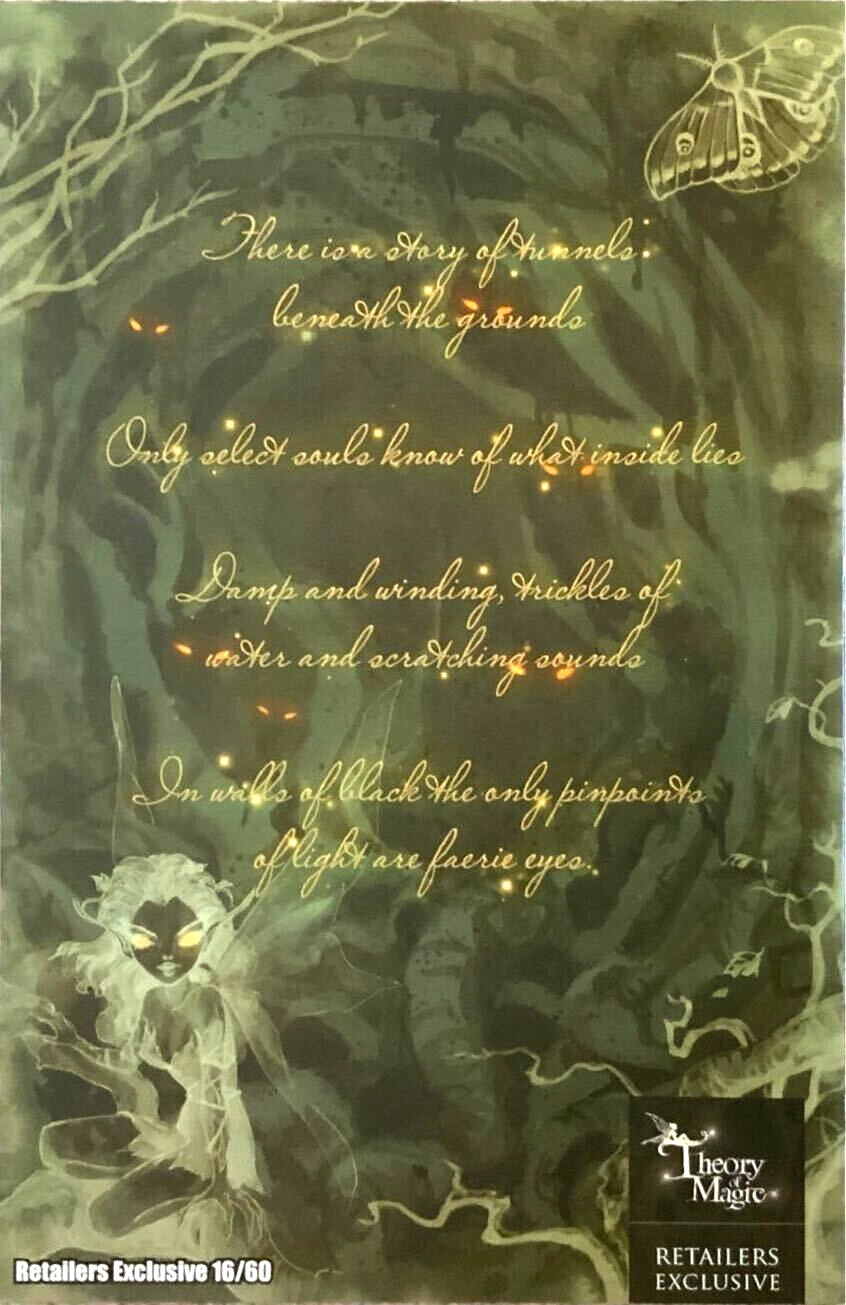 There is a story of tunnels
beneath the grounds
Only select souls know of what inside lies
Damp and winding, trickles of
water and scratching sounds
In walls of black the only pinpoints
of light are faerie eyes.
Theory
of
Magic
RETAILERS
EXCLUSIVE
Retailers Exclusive 16/60